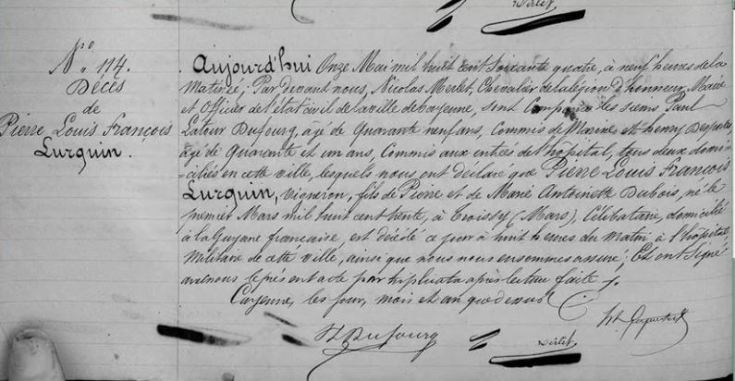 Merlet
No. 114.
Décès
de
Pierre Louis François
Lurquin.
Aujourd'hui Onze Mai mil huit cent soixante quatre, à neuf heures de la
Matinée; Par devant nous, Nicolas Merlet, Chevalier de la légion d'honneur, Maire
et Officier de l'état civil de la ville de Cayenne, sont Comparus les sieurs Paul
Latour Dufourg, agé de Quarante neuf ans, Commis de Marine et henry Desportes
agé de Quarante et un ans, Commis aux entrées de l'hopital, tous deux domi-
ciliés en cette ville, lesquels nous ont déclaré que Pierre Louis François
Lurquin, Vigneron, fils de Pierre et de Marie Antoinette Dubois, né le
premier Mars mil huit cent trente, à Troissy (Mars), Célibataire, domicilié
à la Guyane française, est décédé ce jour à huit heures du matin à l'hôpital
Militaire de cette ville, ainsi que nous nous en sommes assuré; Et ont Signé
avec nous le présent acte par triplicata après lecture faite.
Cayenne, les jour, mois et an que dessus.
Dufourg
Merlet